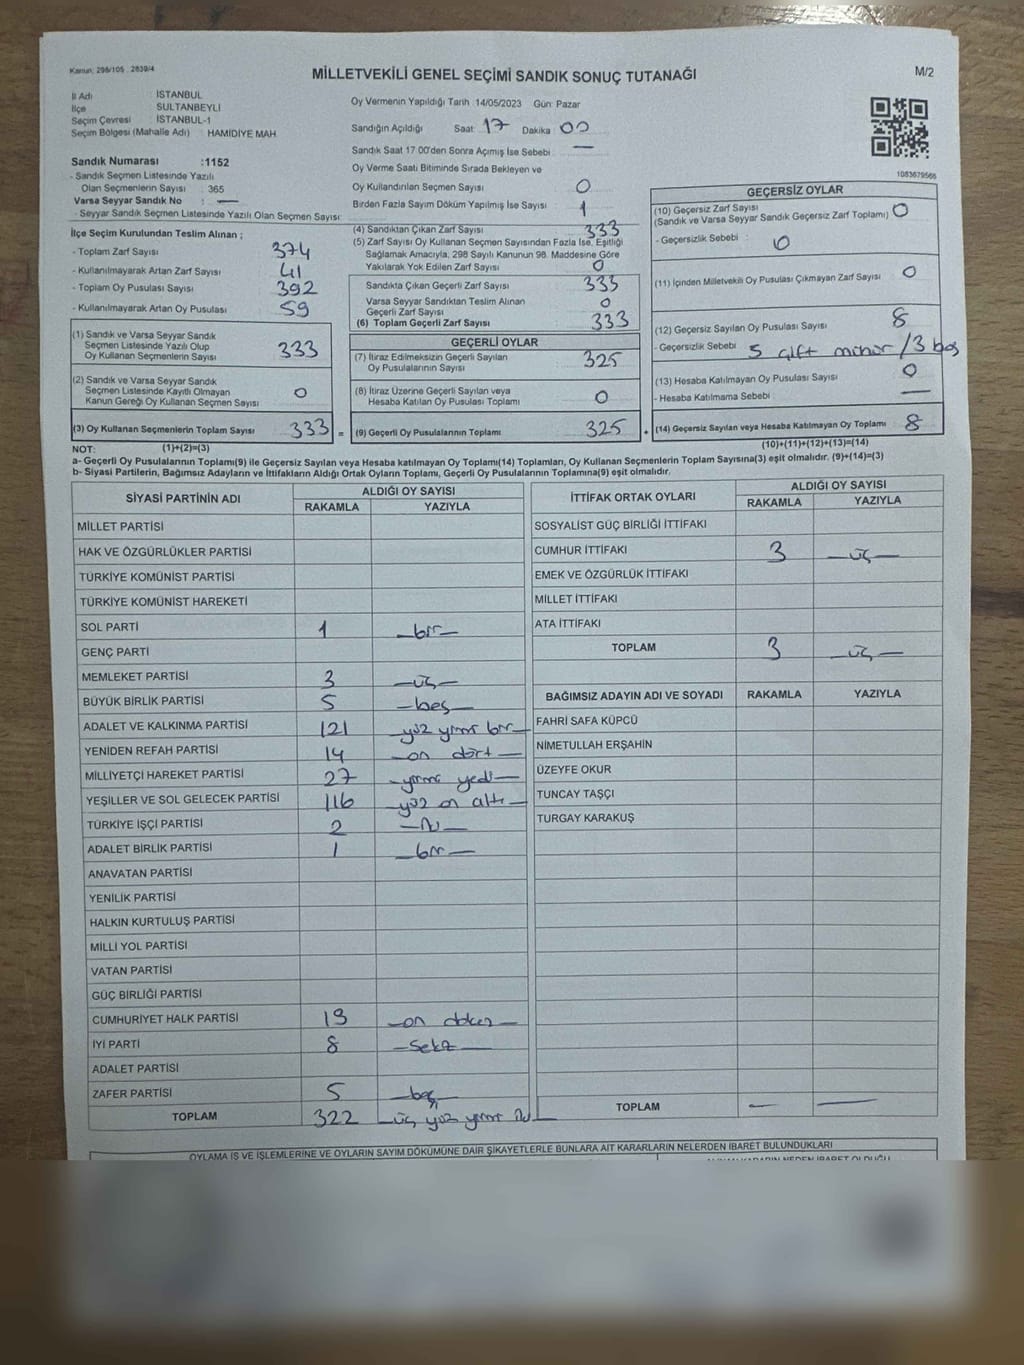 Kanun: 298/105 , 2839/4
MİLLETVEKİLİ GENEL SEÇİMİ SANDIK SONUÇ TUTANAĞI
M/2
İl Adı : İSTANBUL
İlçe : SULTANBEYLİ
Seçim Çevresi : İSTANBUL-1
Seçim Bölgesi (Mahalle Adı) : HAMİDİYE MAH.
Oy Vermenin Yapıldığı Tarih 14/05/2023 Gün: Pazar
Sandığın Açıldığı Saat: 17 Dakika : 00
Sandık Saat 17.00'den Sonra Açımış İse Sebebi : —
Oy Verme Saati Bitiminde Sırada Bekleyen ve
Oy Kullandırılan Seçmen Sayısı : 0
Birden Fazla Sayım Döküm Yapılmış İse Sayısı : 1
1083679566
Sandık Numarası :1152
- Sandık Seçmen Listesinde Yazılı
Olan Seçmenlerin Sayısı : 365
Varsa Seyyar Sandık No : —
- Seyyar Sandık Seçmen Listesinde Yazılı Olan Seçmen Sayısı:
İlçe Seçim Kurulundan Teslim Alınan ;
- Toplam Zarf Sayısı : 374
- Kullanılmayarak Artan Zarf Sayısı : 41
- Toplam Oy Pusulası Sayısı : 392
- Kullanılmayarak Artan Oy Pusulası : 59
(1) Sandık ve Varsa Seyyar Sandık
Seçmen Listesinde Yazılı Olup
Oy Kullanan Seçmenlerin Sayısı : 333
(2) Sandık ve Varsa Seyyar Sandık
Seçmen Listesinde Kayıtlı Olmayan
Kanun Gereği Oy Kullanan Seçmen Sayısı : 0
(3) Oy Kullanan Seçmenlerin Toplam Sayısı : 333 =
(4) Sandıktan Çıkan Zarf Sayısı : 333
(5) Zarf Sayısı Oy Kullanan Seçmen Sayısından Fazla İse, Eşitliği
Sağlamak Amacıyla, 298 Sayılı Kanunun 98. Maddesine Göre
Yakılarak Yok Edilen Zarf Sayısı : 0
Sandıkta Çıkan Geçerli Zarf Sayısı : 333
Varsa Seyyar Sandıktan Teslim Alınan
Geçerli Zarf Sayısı : 0
(6) Toplam Geçerli Zarf Sayısı : 333
GEÇERLİ OYLAR
(7) İtiraz Edilmeksizin Geçerli Sayılan
Oy Pusulalarının Sayısı : 325
(8) İtiraz Üzerine Geçerli Sayılan veya
Hesaba Katılan Oy Pusulası Toplamı : 0
(9) Geçerli Oy Pusulalarının Toplamı : 325 +
GEÇERSİZ OYLAR
(10) Geçersiz Zarf Sayısı : 0
(Sandık ve Varsa Seyyar Sandık Geçersiz Zarf Toplamı)
- Geçersizlik Sebebi : 0
(11) İçinden Milletvekili Oy Pusulası Çıkmayan Zarf Sayısı : 0
(12) Geçersiz Sayılan Oy Pusulası Sayısı : 8
- Geçersizlik Sebebi : 5 çift mühür / 3 boş
(13) Hesaba Katılmayan Oy Pusulası Sayısı : 0
- Hesaba Katılmama Sebebi : —
(14) Geçersiz Sayılan veya Hesaba Katılmayan Oy Toplamı : 8
NOT: (1)+(2)=(3)
(10)+(11)+(12)+(13)=(14)
a- Geçerli Oy Pusulalarının Toplamı(9) ile Geçersiz Sayılan veya Hesaba katılmayan Oy Toplamı(14) Toplamları, Oy Kullanan Seçmenlerin Toplam Sayısına(3) eşit olmalıdır. (9)+(14)=(3)
b- Siyasi Partilerin, Bağımsız Adayların ve İttifakların Aldığı Ortak Oyların Toplamı, Geçerli Oy Pusulalarının Toplamına(9) eşit olmalıdır.
SİYASİ PARTİNİN ADI ALDIĞI OY SAYISI
RAKAMLA YAZIYLA
MİLLET PARTİSİ
HAK VE ÖZGÜRLÜKLER PARTİSİ
TÜRKİYE KOMÜNİST PARTİSİ
TÜRKİYE KOMÜNİST HAREKETİ
SOL PARTİ 1 —bir—
GENÇ PARTİ
MEMLEKET PARTİSİ 3 —üç—
BÜYÜK BİRLİK PARTİSİ 5 —beş—
ADALET VE KALKINMA PARTİSİ 121 —yüz yirmi bir—
YENİDEN REFAH PARTİSİ 14 —on dört—
MİLLİYETÇİ HAREKET PARTİSİ 27 —yirmi yedi—
YEŞİLLER VE SOL GELECEK PARTİSİ 116 —yüz on altı—
TÜRKİYE İŞÇİ PARTİSİ 2 —iki—
ADALET BİRLİK PARTİSİ 1 —bir—
ANAVATAN PARTİSİ
YENİLİK PARTİSİ
HALKIN KURTULUŞ PARTİSİ
MİLLİ YOL PARTİSİ
VATAN PARTİSİ
GÜÇ BİRLİĞİ PARTİSİ
CUMHURİYET HALK PARTİSİ 19 —on dokuz—
İYİ PARTİ 8 —sekiz—
ADALET PARTİSİ
ZAFER PARTİSİ 5 —beş—
TOPLAM 322 —üç yüz yirmi iki—
İTTİFAK ORTAK OYLARI ALDIĞI OY SAYISI
RAKAMLA YAZIYLA
SOSYALİST GÜÇ BİRLİĞİ İTTİFAKI
CUMHUR İTTİFAKI 3 —üç—
EMEK VE ÖZGÜRLÜK İTTİFAKI
MİLLET İTTİFAKI
ATA İTTİFAKI
TOPLAM 3 —üç—
BAĞIMSIZ ADAYIN ADI VE SOYADI RAKAMLA YAZIYLA
FAHRİ SAFA KÜPCÜ
NİMETULLAH ERŞAHİN
ÜZEYFE OKUR
TUNCAY TAŞÇI
TURGAY KARAKUŞ
TOPLAM — —
OYLAMA İŞ VE İŞLEMLERİNE VE OYLARIN SAYIM DÖKÜMÜNE DAİR ŞİKAYETLERLE BUNLARA AİT KARARLARIN NELERDEN İBARET BULUNDUKLARI